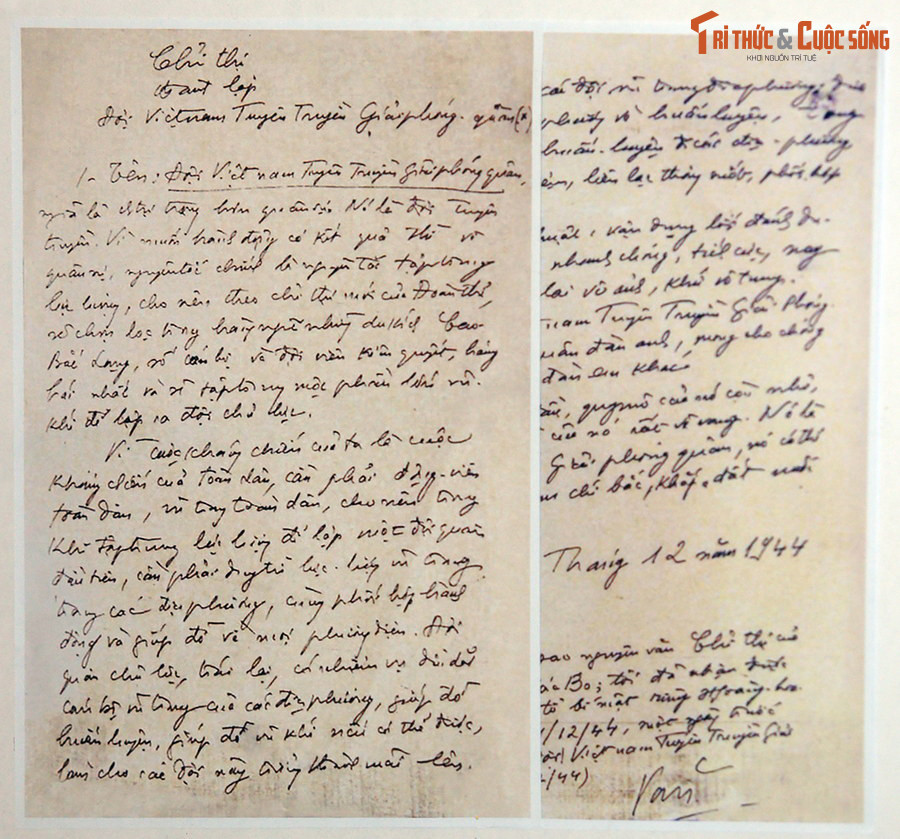 TRI THỨC & CUỘC SỐNG
KHƠI NGUỒN TRÍ TUỆ
Chỉ thị
thành lập
Đội Việtnam Tuyên Truyền Giải phóng quân (x)
1- Tên: Đội Việt nam Tuyên Truyền Giải phóng quân,
nghĩa là chính trị trọng hơn quân sự. Nó là đội tuyên
truyền. Vì muốn hành động có kết quả thì về
quân sự, nguyên tắc chính là nguyên tắc tập trung
lực lượng, cho nên theo chỉ thị mới của Đoàn thể,
sẽ chọn lọc trong hàng ngũ những du kích Cao-
Bắc Lạng, số cán bộ và đội viên kiên quyết, hăng
hái nhất và sẽ tập trung một phần lớn vũ
khí để lập ra đội chủ lực.
Vì cuộc kháng chiến của ta là cuộc
kháng chiến của toàn dân, cần phải động-viên
toàn dân, vũ trang toàn dân, cho nên trong
khi tập trung lực lượng để lập một đội quân
đầu tiên, cần phải duy trì lực-lượng vũ trang
trong các địa phương, cùng phối hợp hành
động và giúp đỡ về mọi phương diện. Đội
quân chủ lực, trái lại, có nhiệm vụ dìu dắt
cán bộ vũ trang của các địa phương, giúp đỡ
huấn luyện, giúp đỡ vũ khí nếu có thể được,
làm cho các đội này trưởng thành mãi lên.
các đội vũ trang địa phương;
phương về huấn luyện,
huấn-luyện đi các địa-phương
liên lạc thông suốt, phối hợp
thuật: vận dụng lối đánh du-
nhanh chóng, tích cực, nay
lai vô ảnh, khứ vô tung.
nam Tuyên Truyền Giải Phóng
quân đàn anh, mong cho chóng
đàn em khác
quy mô của nó còn nhỏ,
của nó rất vẻ vang. Nó là
Giải phóng quân, nó có thể
chí bắc, khắp đất nước
Tháng 12 năm 1944
sao nguyên văn Chỉ thị của
ác Bo; tôi đã nhận được
bí mật rừng Hoàng-hoa
/12/44, một ngày trước
Đội Việt nam Tuyên Truyền Giải
/44)
Văn